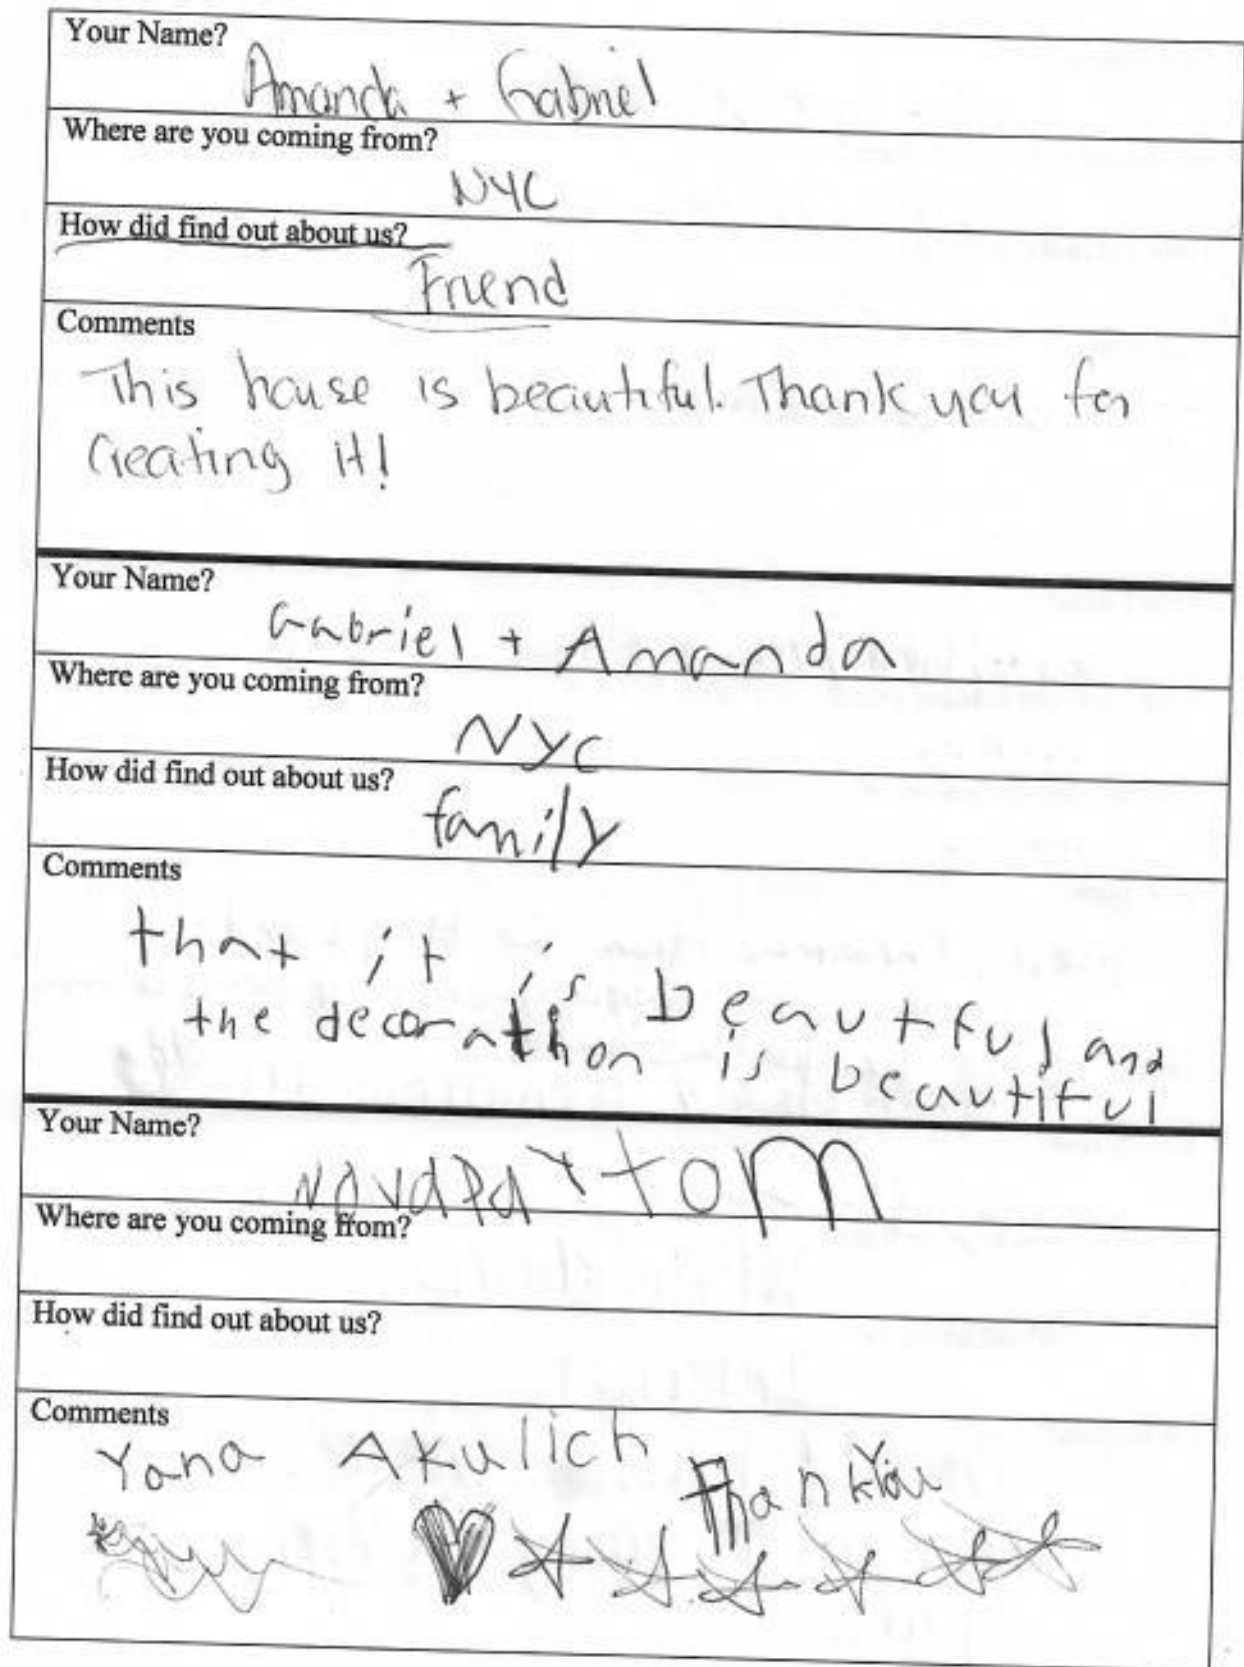 Your Name?
Amanda + Gabriel
Where are you coming from?
NYC
How did find out about us?
Friend
Comments
This house is beautiful. Thank you for
Creating it!
Your Name?
Gabriel + Amanda
Where are you coming from?
NYC
How did find out about us?
family
Comments
that it is beautful and
the decorathon is beautiful
Your Name?
+ tom
Where are you coming from?
How did find out about us?
Comments
Yana Akulich Thank You